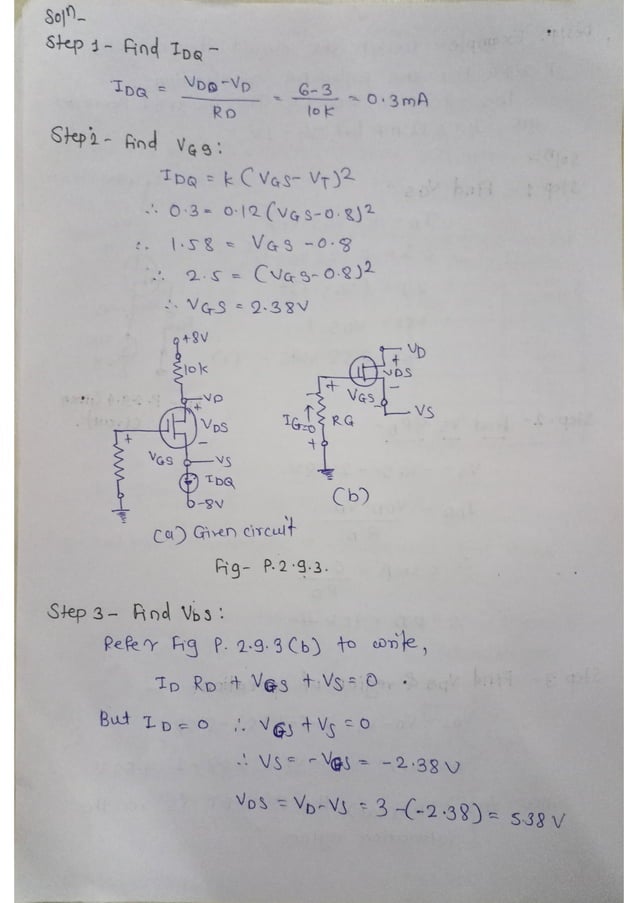 Soln-
Step 1- Find IDQ -
IDQ = VDD-VD / RD = 6-3 / 10K = 0.3mA
Step 2- Find VGS :
IDQ = K (VGS- VT)2
∴ 0.3 = 0.12 (VGS-0.8)2
∴ 1.58 = VGS -0.8
∴ 2.5 = (VGS-0.8)2
∴ VGS = 2.38V
+8V
10K
VD
+
VDS
-
+
VGS
VS
IDQ
-8V
(a) Given circuit
VD
+
VDS
-
+
VGS
-
VS
IG=0
RG
+
(b)
Fig- P.2.9.3.
Step 3- Find VDS :
Refer Fig P. 2.9.3 (b) to write,
ID RD + VGS + VS = 0 .
But ID = 0 ∴ VGS + VS = 0
∴ VS = - VGS = -2.38 V
VDS = VD-VS = 3-(-2.38) = 5.38 V